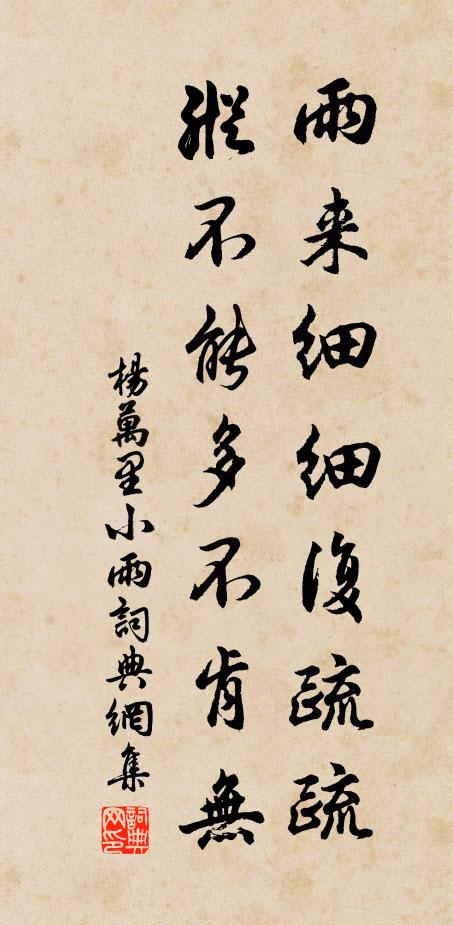 雨来細細復疏疏
縱不能多不肯無
楊萬里小雨詞典網集
詞典网印